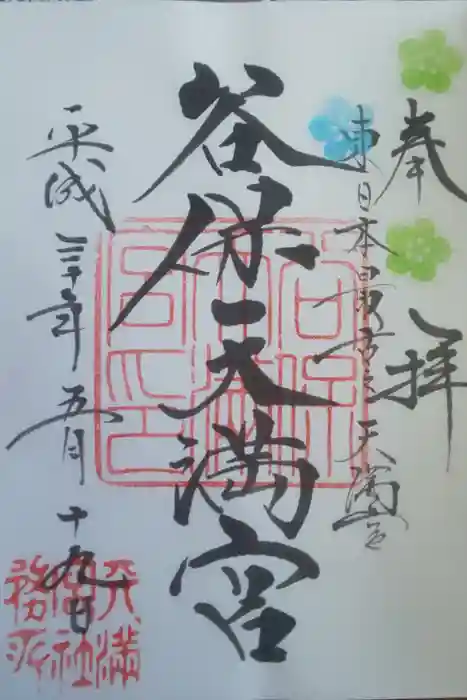 奉拝
東日本最古之天満宮
谷保天満宮
平成三十年五月十九日
天満宮社務所